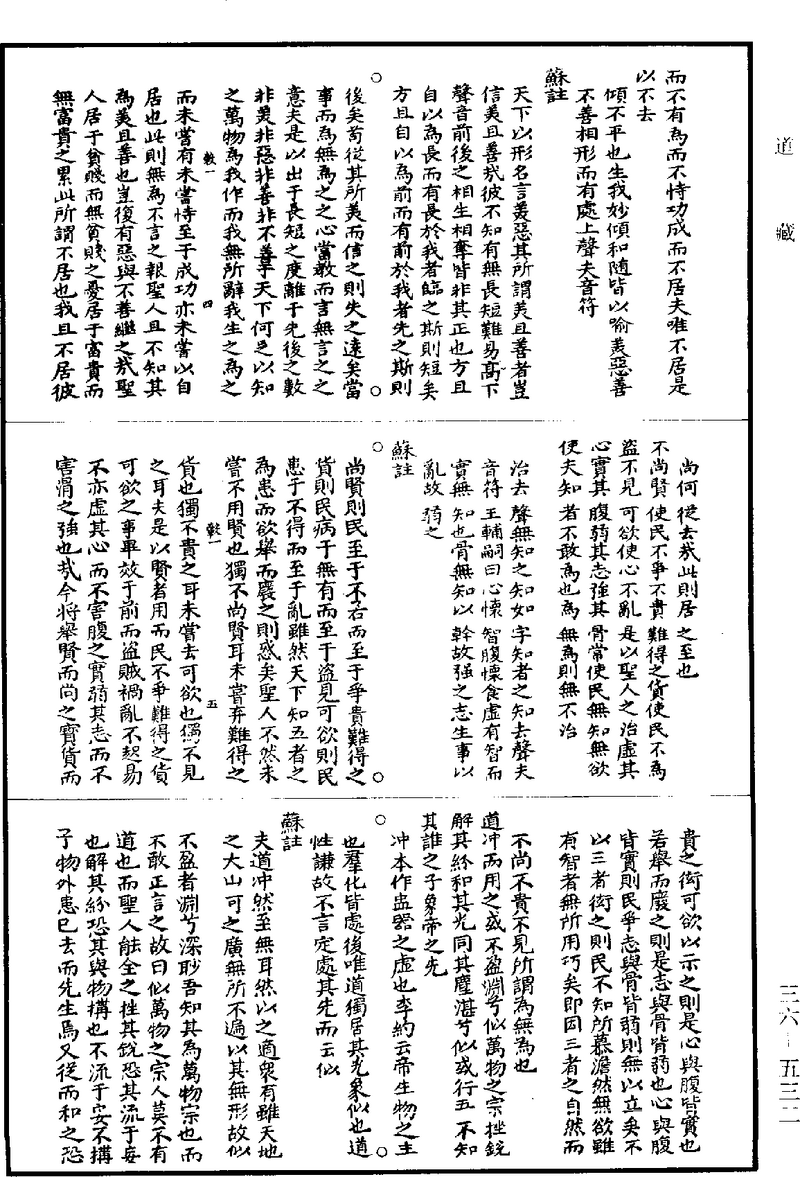 道藏
而不有為而不恃功成而不居夫唯不居是
以不去
傾不平也生我妙傾和隨皆以喻羙惡善
不善相形而有處上聲夫音符
蘇註
天下以形名言羙惡其所謂羙且善者豈
信羙且善㢤彼不知有無長短難易高下
聲音前後之相生相奪皆非其正也方且
自以為長而有長於我者臨之斯則短矣
方且自以為前而有前於我者先之斯則
後矣苟從其所羙而信之則失之逺矣當
事而為無為之之心當敎而言無言之之
意夫是以出于長短之度離于先後之數
非羙非惡非善非不善享天下何足以知
之萬物為我作而我無所辭我生之為之
而未嘗有未嘗恃至于成功亦未嘗以自
居也此則無為不言之報聖人且不知其
為羙且善也豈復有惡與不善繼之㢤聖
人居于貧賤而無貧賤之憂居于富貴而
無富貴之累此所謂不居也我且不居彼
敎一
四
尚何從去㢤此則居之至也
不尚賢使民不爭不貴難得之貨使民不為
盗不見可欲使心不亂是以聖人之治虛其
心實其腹弱其志強其骨常使民無知無欲
使夫知者不敢為也為無為則無不治
治去聲無知之知如字知者之知去聲夫
音符王輔嗣曰心懷智腹懷食虛有智而
實無知也骨無知以幹故强之志生事以
亂故弱之
蘇註
尚賢則民至于不若而至于爭貴難得之
貨則民病于無有而至于盗見可欲則民
患于不得而至于亂雖然天下知五者之
為患而欲舉而廢之則惑矣聖人不然未
嘗不用賢也獨不尚賢耳未嘗弃難得之
貨也獨不貴之耳未嘗去可欲也獨不見
之耳夫是以賢者用而民不爭難得之貨
可欲之事畢效于前而盗賊禍亂不起易
不亦虛其心而不害腹之實弱其志而不
害滑之強也㢤今將舉賢而尚之寳貨而
敎一
五
貴之衒可欲以示之則是心與腹皆實也
若舉而廢之則是志與骨皆弱也心與腹
皆實則民爭志與骨皆弱則無以立矣不
以三者衒之則民不知所慕澹然無欲雖
有智者無所用巧矣即因三者之自然而
不尚不貴不見所謂為無為也
道冲而用之或不盈淵兮似萬物之宗挫銳
解其紛和其光同其塵湛兮似或行五不知
其誰之子象帝之先
冲本作盅器之虛也李約云帝生物之主
也羣化皆處後唯道獨居其先象似也道
性謙故不言定處其先而云似
蘇註
夫道冲然至無耳然以之適衆有雖天地
之大山可之廣無所不遍以其無形故似
不盈者淵兮深眇吾知其為萬物宗也而
不敢正言之故曰似萬物之宗人莫不有
道也而聖人能全之挫其銳恐其流于妄
也解其紛恐其與物搆也不流于妄不搆
子物外患已去而先生焉又從而和之恐
三六—五三二